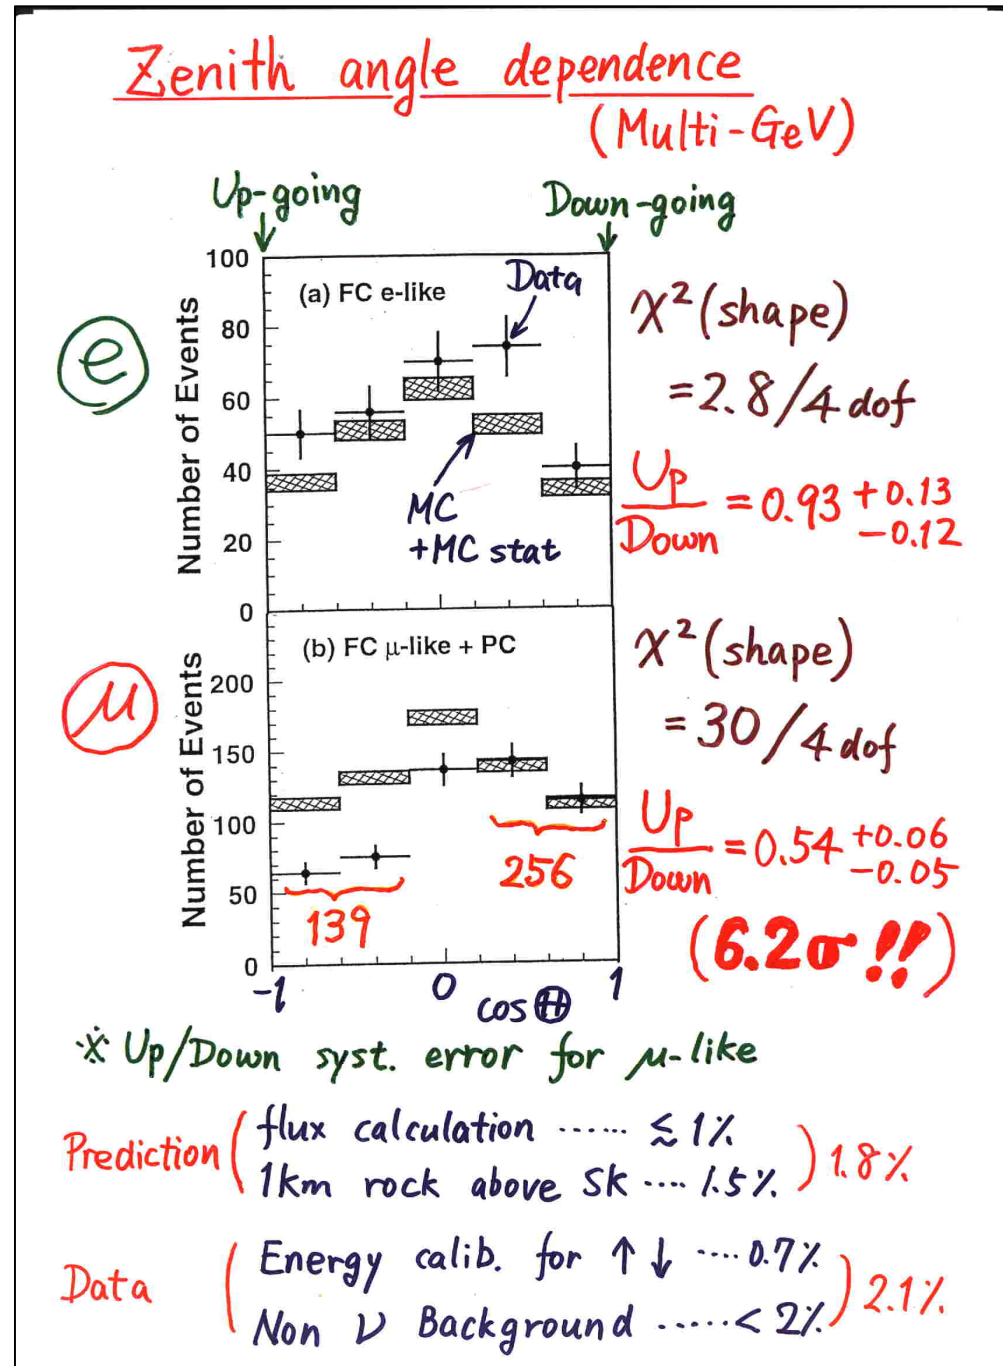 Zenith angle dependence
(Multi-GeV)
Up-going
Down-going
e
Number of Events
100
80
60
40
20
0
(a) FC e-like
Data
MC
+MC stat
χ²(shape)
=2.8/4 dof
Up/Down = 0.93 +0.13 -0.12
μ
Number of Events
200
150
100
50
0
(b) FC μ-like + PC
139
256
-1 0 1
cos Θ
χ²(shape)
=30/4 dof
Up/Down = 0.54 +0.06 -0.05
(6.2σ !!)
※ Up/Down syst. error for μ-like
Prediction ( flux calculation ...... ≲ 1%
1km rock above SK .... 1.5% ) 1.8%
Data ( Energy calib. for ↑ ↓ .... 0.7%
Non ν Background ..... < 2% ) 2.1%